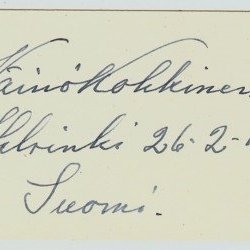 Väinö Kokkinen
Helsinki 26-2-
Suomi.